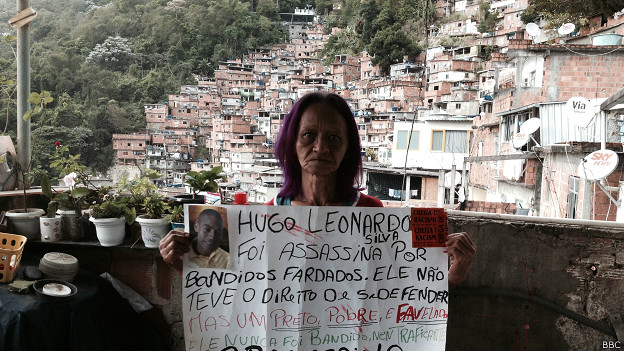 HUGO LEONARDO
SILVA
FOI ASSASSINA POR
BANDIDOS FARDADOS. ELE NÃO
TEVE O DIREITO DE SE DEFENDER
MAS UM PRETO, POBRE, E FAVELADO
ELE NUNCA FOI BANDIDO, NEN TRAFICANTE
CHEGA!
RACISMO
CHEGA!
RACISMO
Via
SKY
BBC